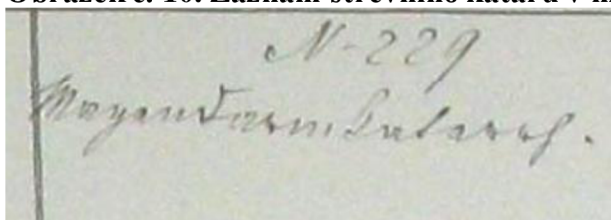 Obrázek č. 10: Záznam střevního kataru v m
N-229
Magendarmkatarrh.